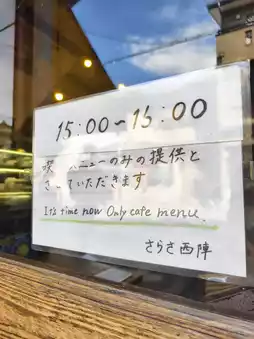 15:00~16:00
喫 メニューのみの提供と
させていただきます
It's time now Only cafe menu.
さらさ西陣